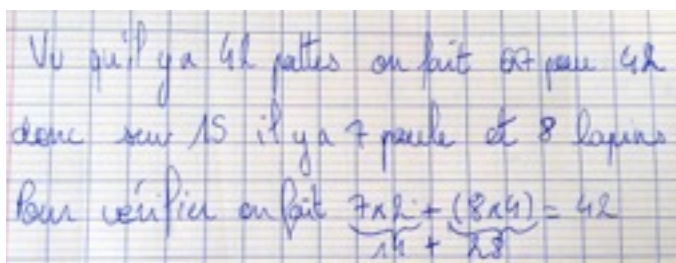 Vu qu'il y a 42 pattes on fait 6x7 pour 42
donc sur 15 il y a 7 poule et 8 lapins
Pour vérifier on fait 7x2 + (8x4) = 42
14 + 28